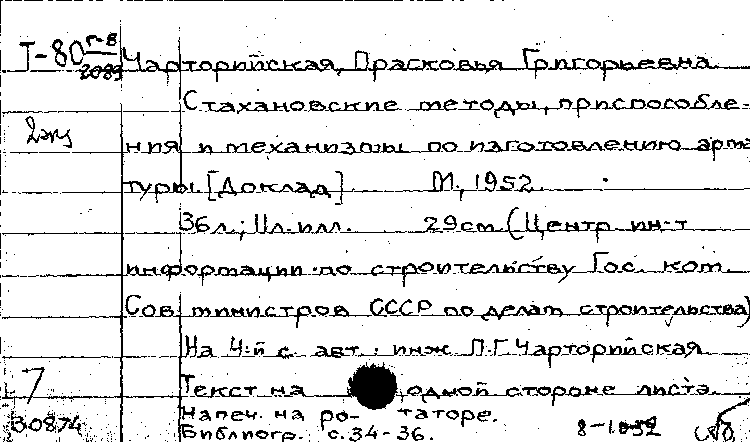 Т-80 г-8
2089
Чарторийская, Прасковья Григорьевна.
Стахановские методы, приспособле-
2 экз
ния и механизмы по изготовлению арма
туры. [Доклад] М., 1952.
36 л.; 11 л. илл. 29 см. (Центр. ин-т
информации по строительству Гос. ком.
Сов. министров СССР по делам строительства)
На 4-й с. авт.: инж. П.Г. Чарторийская
7
Текст на одной стороне листа.
Напеч. на ро- таторе.
30874
Библиогр. с. 34-36.
8-1052